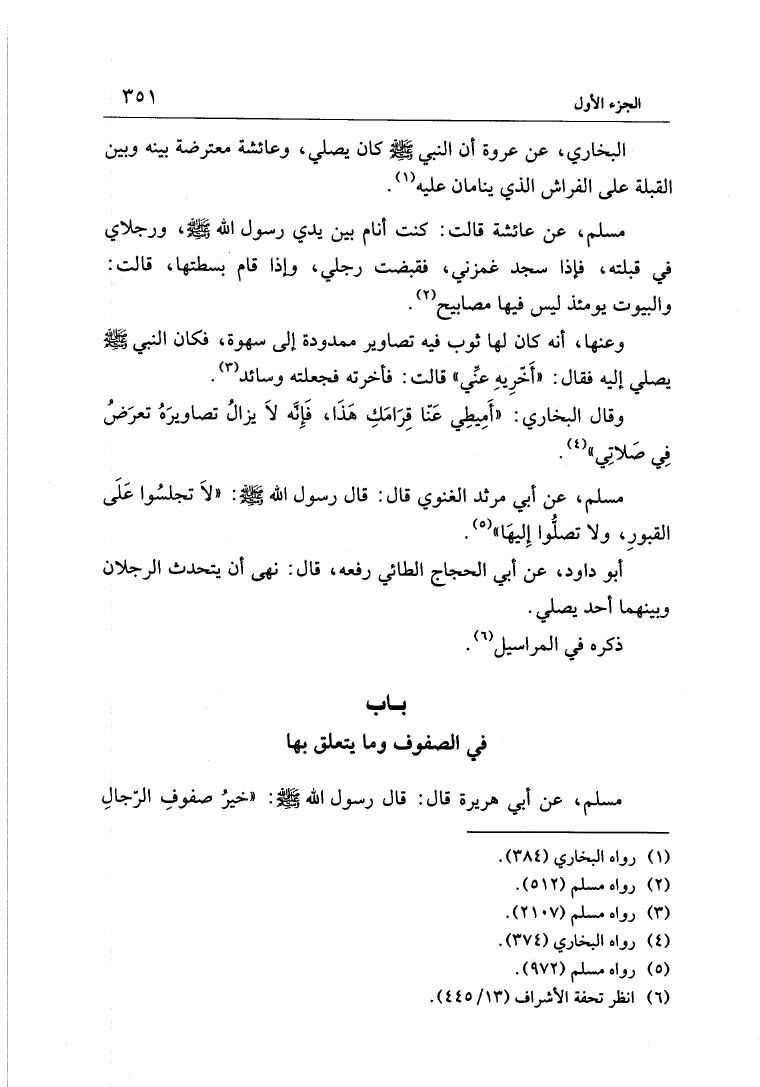 الجزء الأول
٣٥١
البخاري، عن عروة أن النبي ﷺ كان يصلي، وعائشة معترضة بينه وبين
القبلة على الفراش الذي ينامان عليه(١).
مسلم، عن عائشة قالت: كنت أنام بين يدي رسول الله ﷺ، ورجلاي
في قبلته، فإذا سجد غمزني، فقبضت رجلي، وإذا قام بسطتها، قالت:
والبيوت يومئذ ليس فيها مصابيح(٢).
وعنها، أنه كان لها ثوب فيه تصاوير ممدودة إلى سهوة، فكان النبي ﷺ
يصلي إليه فقال: «أَخِّرِيهِ عنِّي» قالت: فأخرته فجعلته وسائد(٣).
وقال البخاري: «أَمِيطِي عَنّا قِرَامَكِ هَذَا، فَإِنَّه لاَ يزالُ تصاويرَهُ تعرَضُ
فِي صَلاتِي»(٤).
مسلم، عن أبي مرثد الغنوي قال: قال رسول الله ﷺ: «لاَ تجلسُوا عَلَى
القبورِ، ولا تصلُّوا إِليهَا»(٥).
أبو داود، عن أبي الحجاج الطائي رفعه، قال: نهى أن يتحدث الرجلان
وبينهما أحد يصلي.
ذكره في المراسيل(٦).
بـاب
في الصفوف وما يتعلق بها
مسلم، عن أبي هريرة قال: قال رسول الله ﷺ: «خيرُ صفوفِ الرّجالِ
(١) رواه البخاري (٣٨٤).
(٢) رواه مسلم (٥١٢).
(٣) رواه مسلم (٢١٠٧).
(٤) رواه البخاري (٣٧٤).
(٥) رواه مسلم (٩٧٢).
(٦) انظر تحفة الأشراف (١٣/ ٤٤٥).